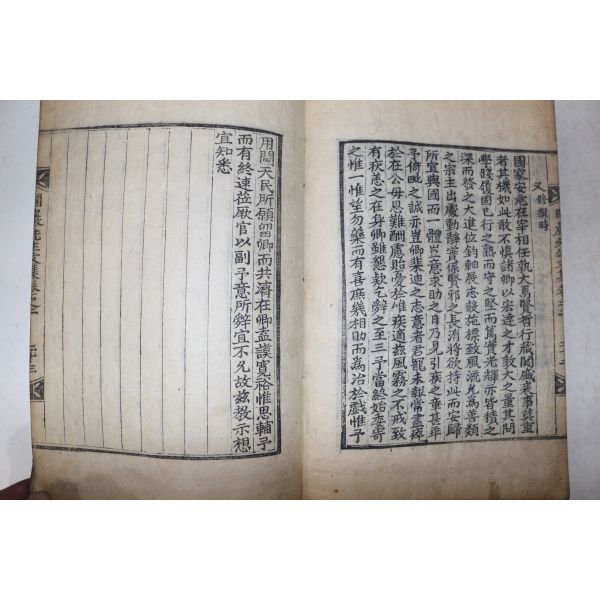 又 錄撰時
國家安危在宰相任孰大焉賢哲行藏關盛衰事莫重
若其機如此敢不慎諸卿以宏達之才敦大之量其問
學踐履固已行之熟而守之堅而篤實光輝亦皆積之
深而發之大進位鈞軸展志設施標致風流允爲善類
之宗主出處動靜實係賢邪之長消將欲持此而安歸
所宜與國而一體豈意求助之日乃見引疾之章甚乖
予倚毗之誠亦豈卿棐迪之志意者君寵未報常盡瘁
於在公母恩難酬慮貽憂於惟疾適玆風霧之不戒致
有疾恙之在身卿雖懇欵乞辭之至三予當終始委寄
之惟一惟望勿藥而有喜庶幾相助而爲治於戲惟予
用閔天民所願留卿而共濟在卿盍謨寬裕惟思輔予
而有終速莅厥官以副予意所辭宜不允故玆敎示想
宜知悉